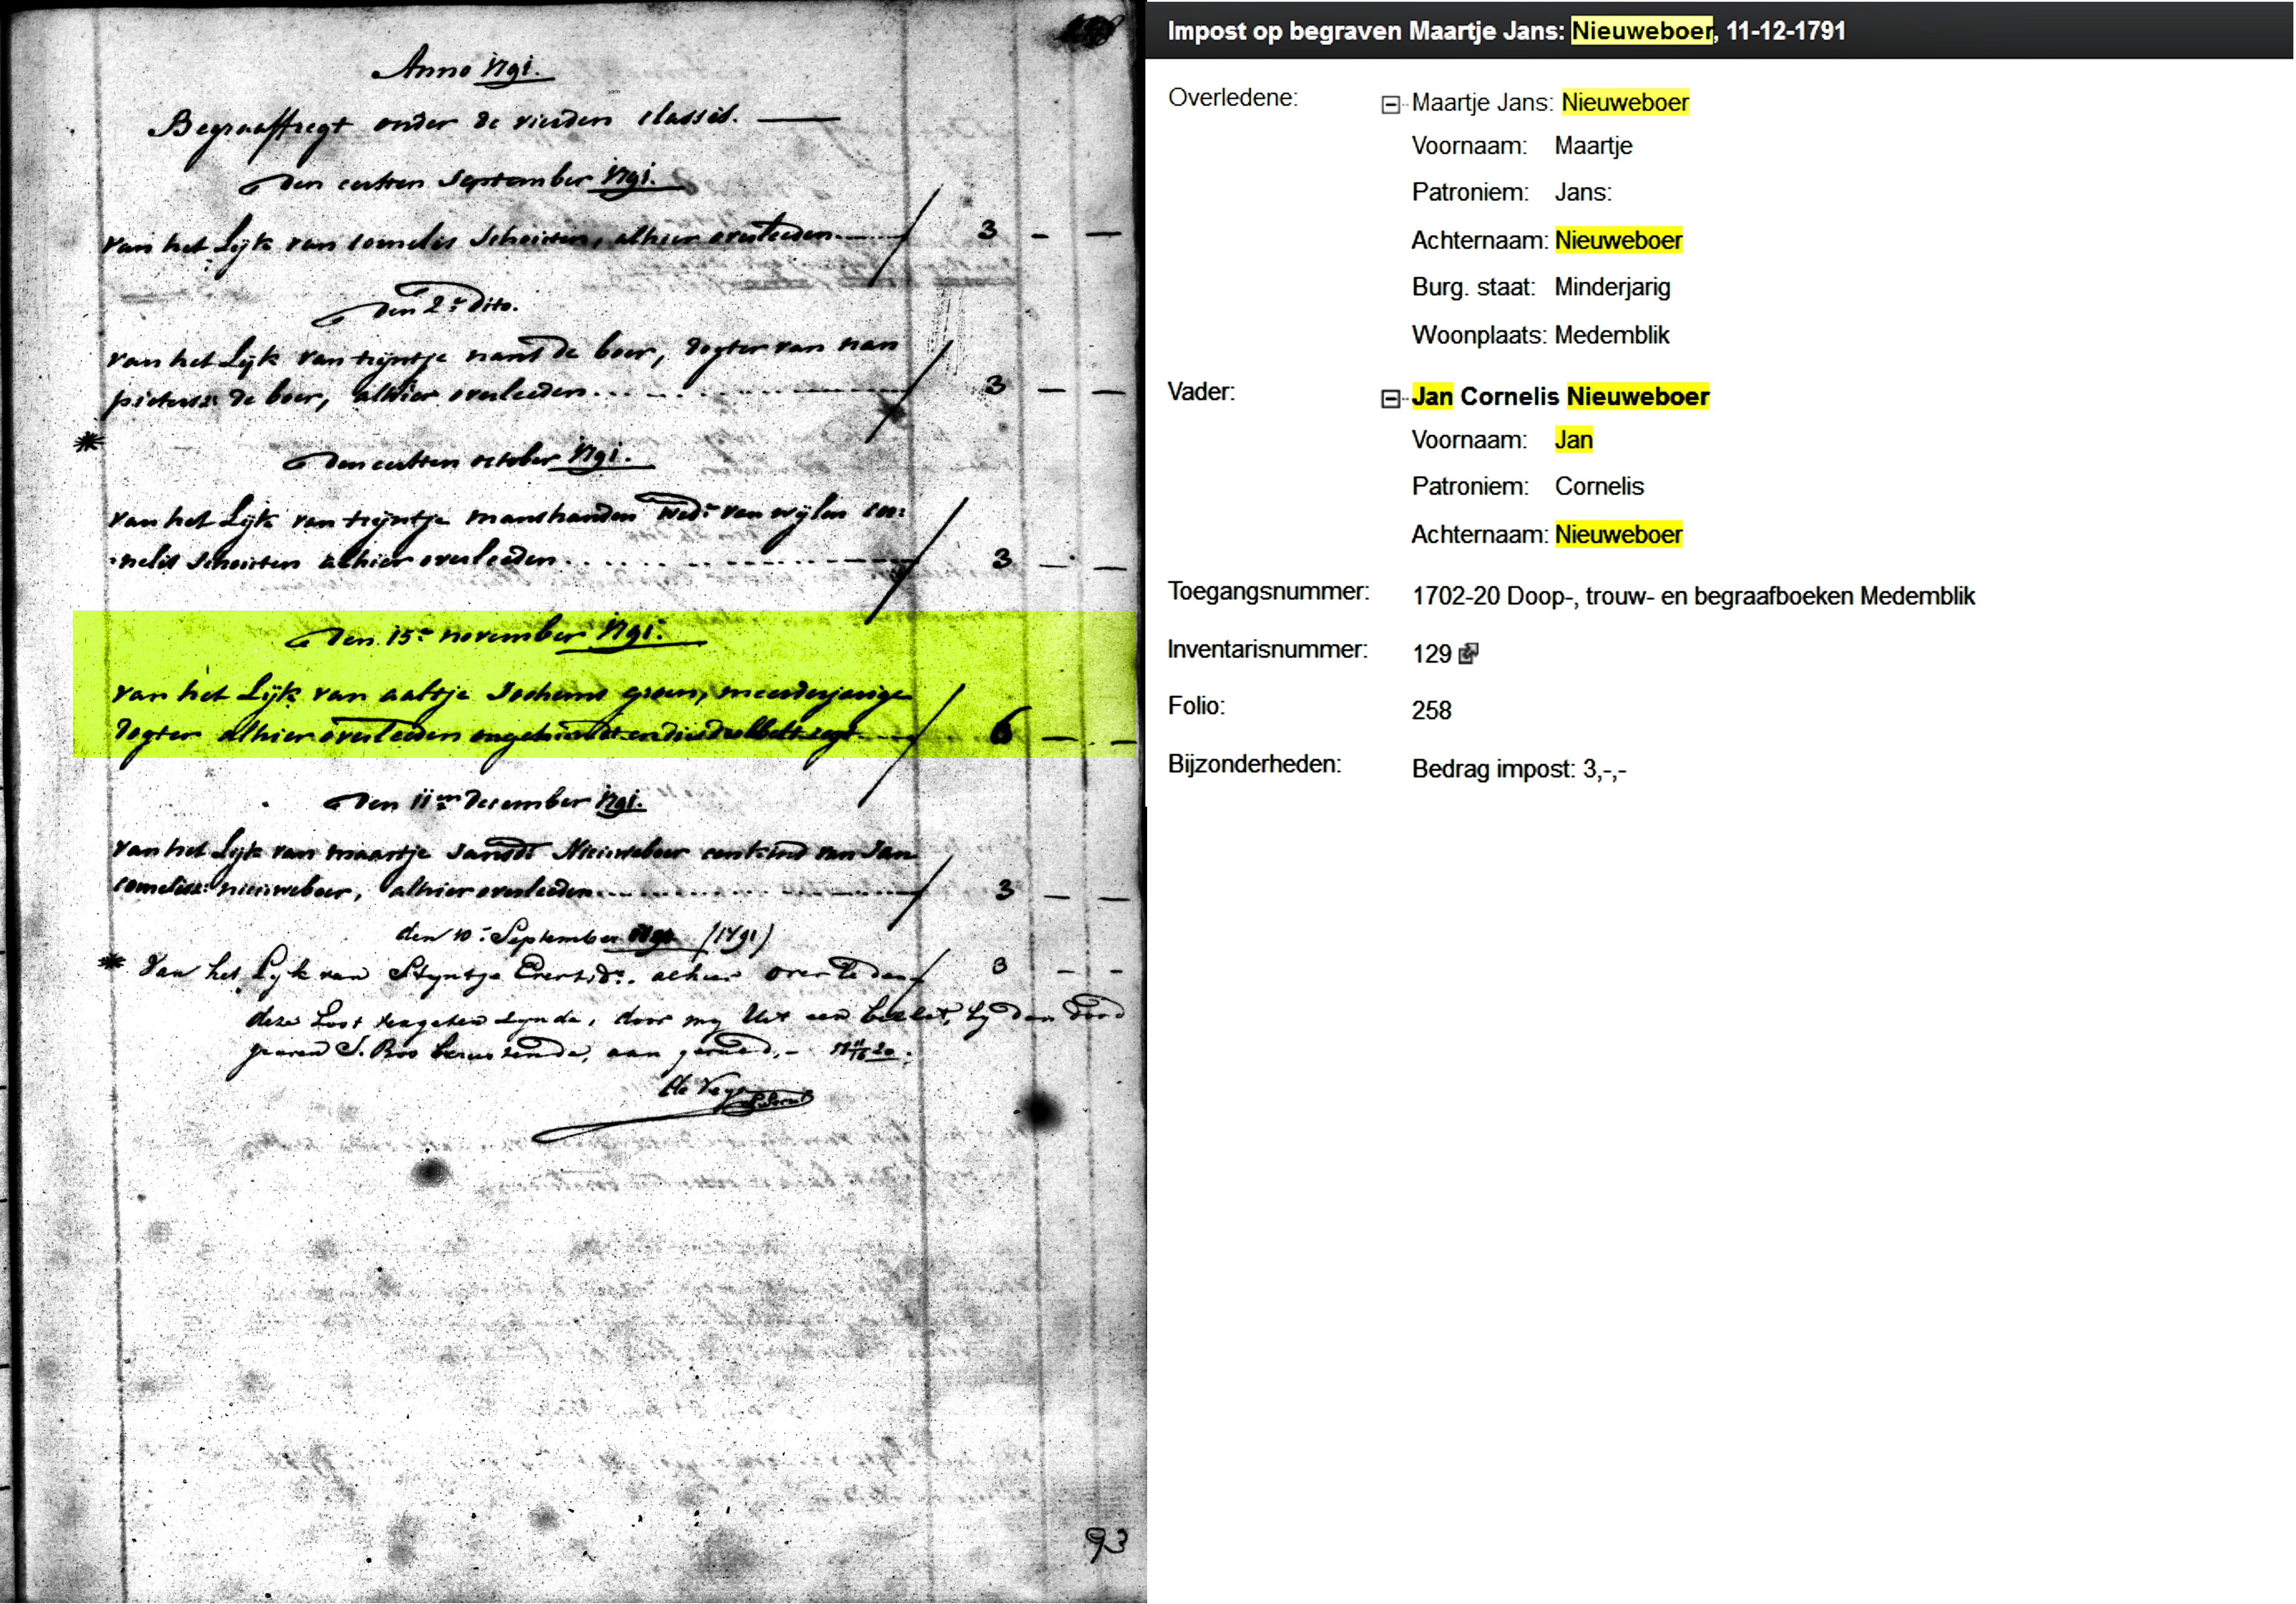 Anno 1791.
Begraaffregt onder de vierden classis.
Den eersten September 1791.
van het Lijk van Cornelis Schouten, alhier overleeden
3 - -
Den 2e Dito.
van het Lijk van trijntje nans de boer, dogter van nan
pietersz: de boer, alhier overleeden
3 - -
Den eersten october 1791.
van het Lijk van trijntje manshanden wede: van wijlen Cor:
nelis Schouten alhier overleeden
3 - -
Den 15e november 1791.
van het Lijk van aaltje Jochems groen, meerderjarige
Dogter alhier overleeden ongehuwt en dus dubbelt regt
6 - -
Den 11en December 1791.
van het Lijk van maartje Jansdr Nieuweboer een kind van Jan
Cornelisz: nieuweboer, alhier overleeden
3 - -
den 10e September (1791)
* Van het Lyk van Styntje Evertsdr. alhier overleden
3 - -
deze Post vergeten zynde, door my Uit een billet, by den dood
graver S. Bos berustende, aan
93
Impost op begraven Maartje Jans: Nieuweboer, 11-12-1791
Overledene: Maartje Jans: Nieuweboer
Voornaam: Maartje
Patroniem: Jans:
Achternaam: Nieuweboer
Burg. staat: Minderjarig
Woonplaats: Medemblik
Vader: Jan Cornelis Nieuweboer
Voornaam: Jan
Patroniem: Cornelis
Achternaam: Nieuweboer
Toegangsnummer: 1702-20 Doop-, trouw- en begraafboeken Medemblik
Inventarisnummer: 129
Folio: 258
Bijzonderheden: Bedrag impost: 3,-,-